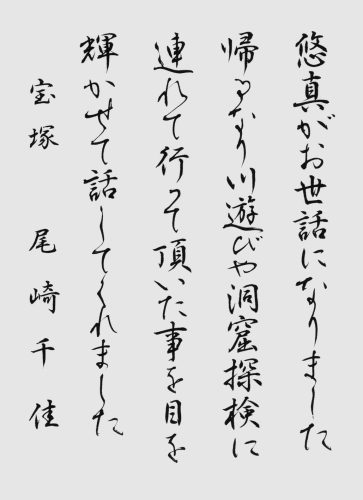 悠真がお世話になりました
帰るなり川遊びや洞窟探検に
連れて行って頂いた事を目を
輝かせて話してくれました
宝塚 尾崎千佳